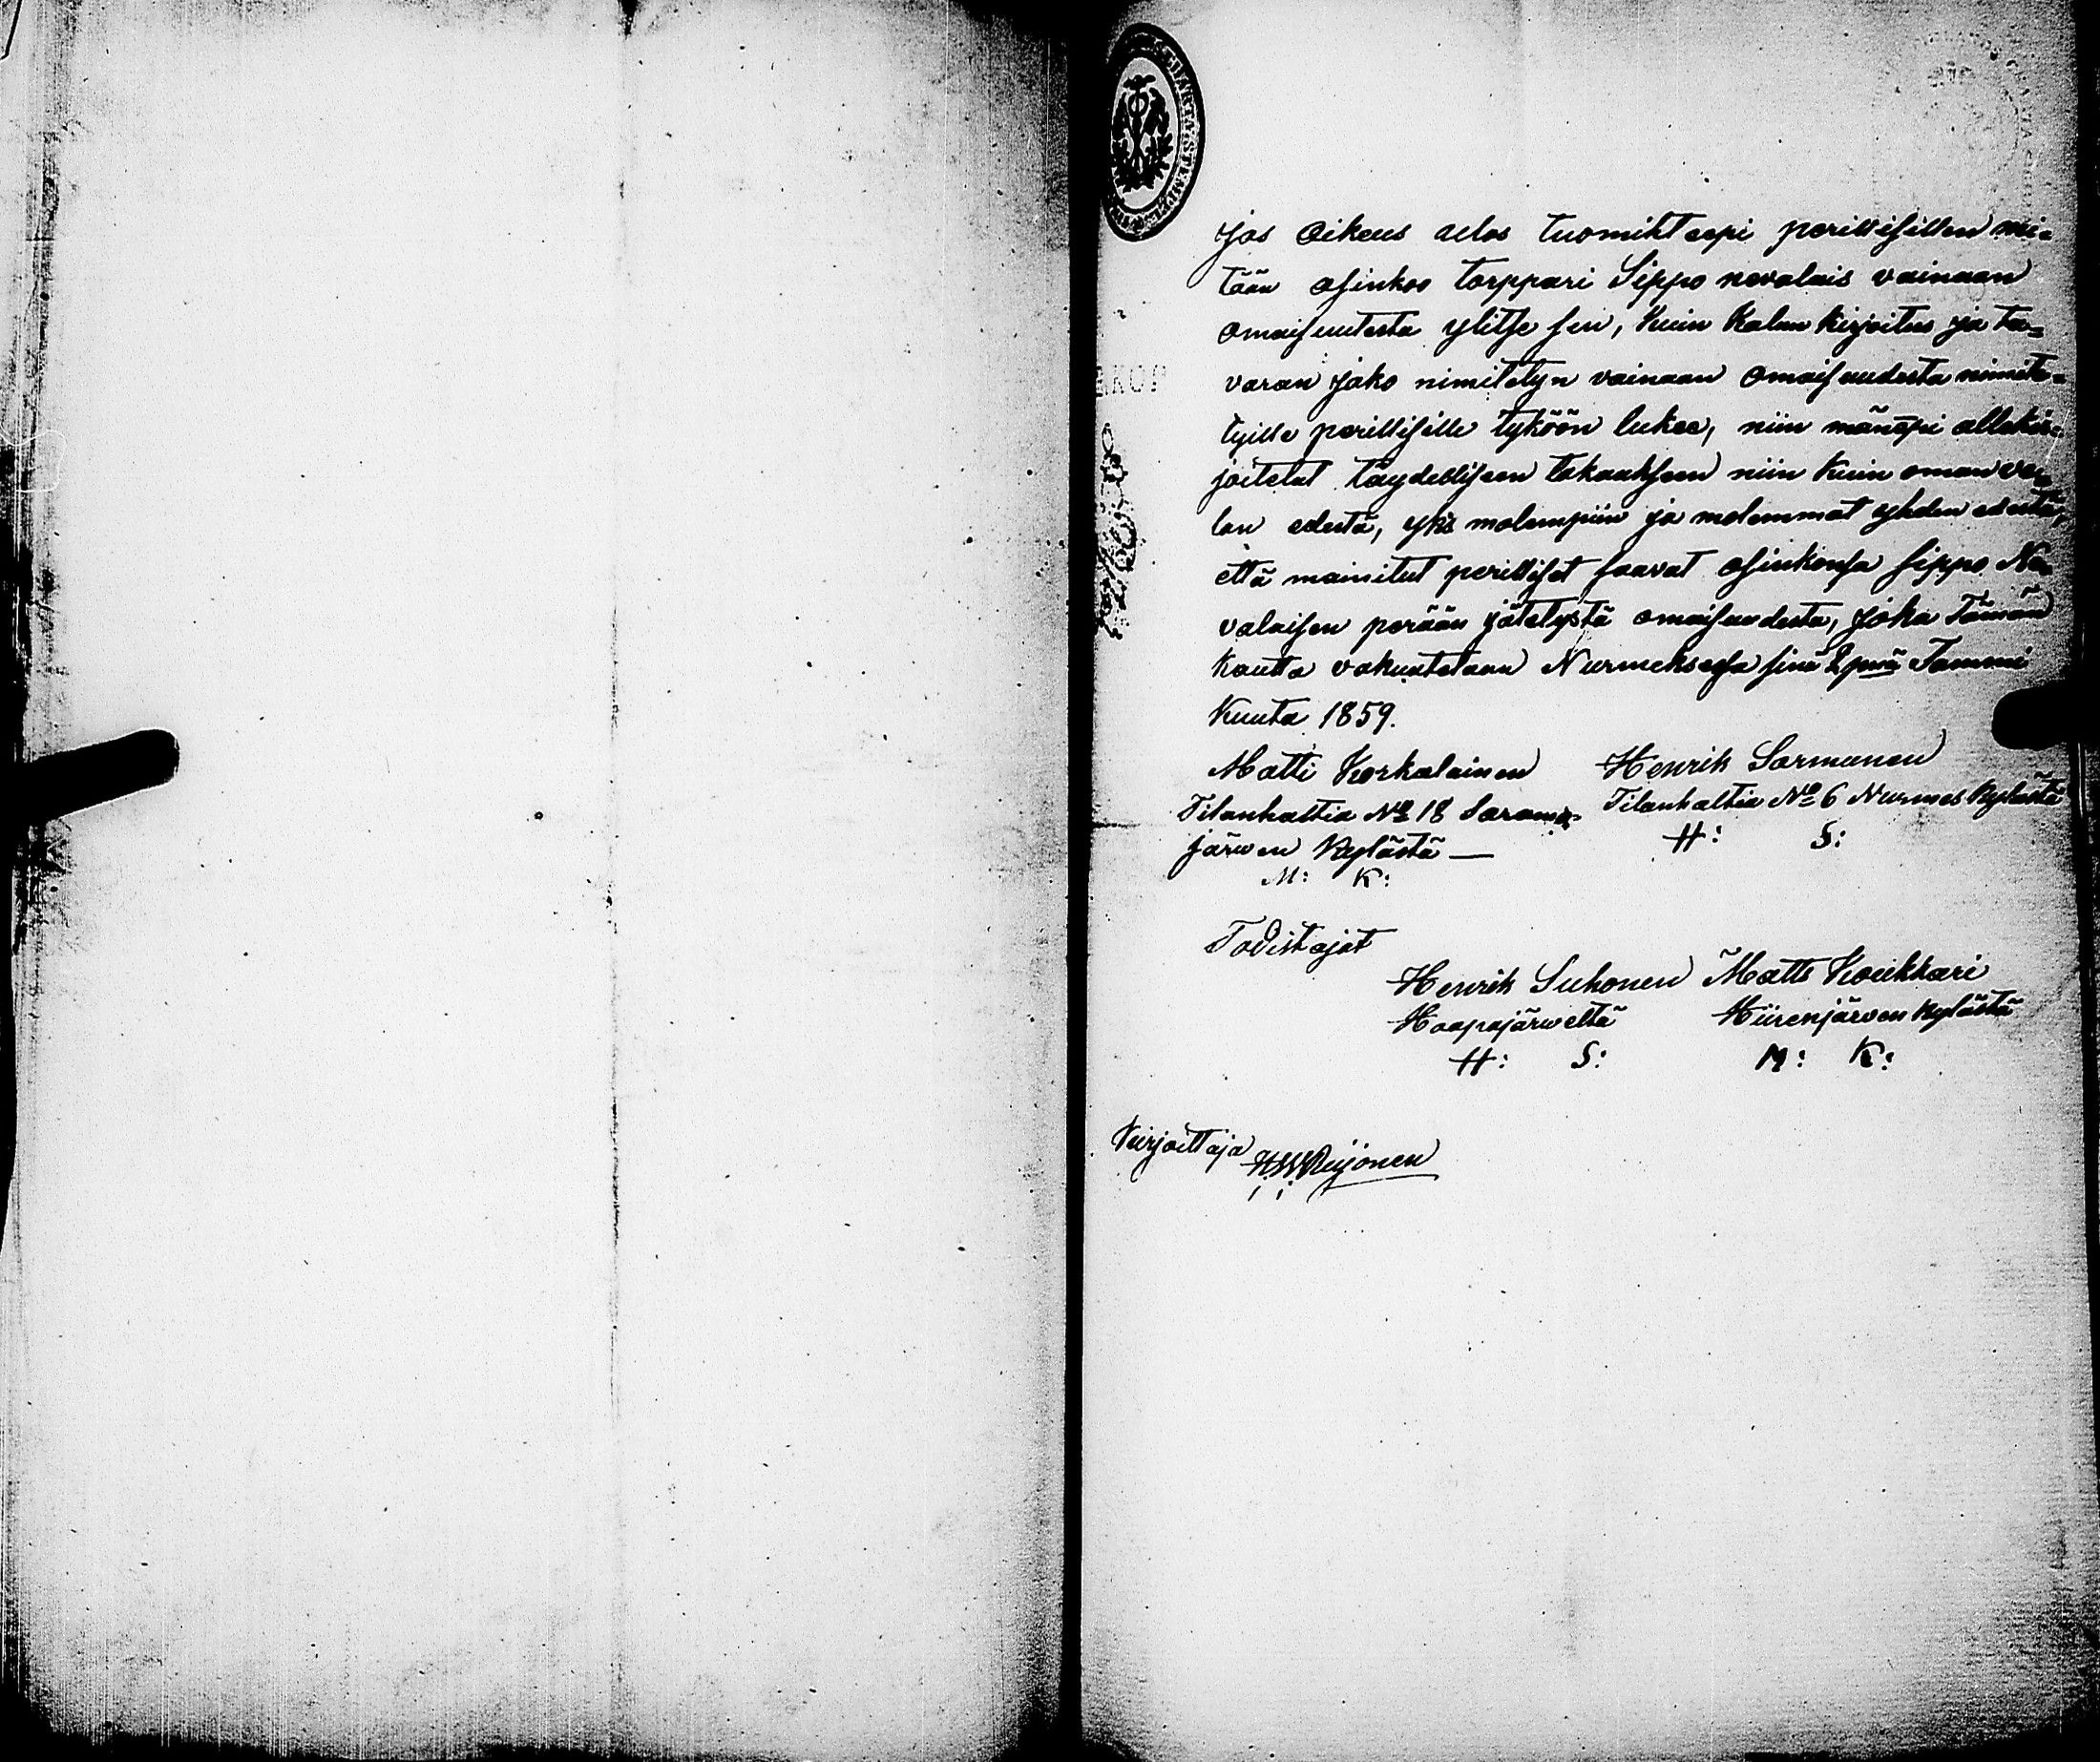 Jos Oikeus ulos tuomihteepi perillisillen mi=
tään osinkoo torppari Sippo nevalais vainaan
omaisuutesta ylitse sen, kuin kalun kirjoitus ja ta=
varan jako nimitetyn vainaan omaisuudesta nimite=
tyille perillisille tyköön lukee, niin mänepi allekir=
joitetut täydellisseen takauksseen niin kuin oman ve=
lan edestä, yks molempiin ja molemmat yhden edestä,
että mainitut perilliset saavat osinkonsa Sippo Ne=
valaisen perään jätetystä omaisuudesta, joka tämän
kautta vakuutetaan Nurmeksessa sinä 2 pnä Tammi
kuuta 1859.
Matti Korkalainen Henrik Sormunen
Tilanhaltia No 18 Saramo= Tilanhaltia No 6 Nurmes kylästä
järwen kylästä — H: S:
M: K:
Todistajat
Henrik Suhonen Matts Koukkari
Haapajärweltä Hiirenjärven kylästä
H: S: M: K:
Kirjoittaja